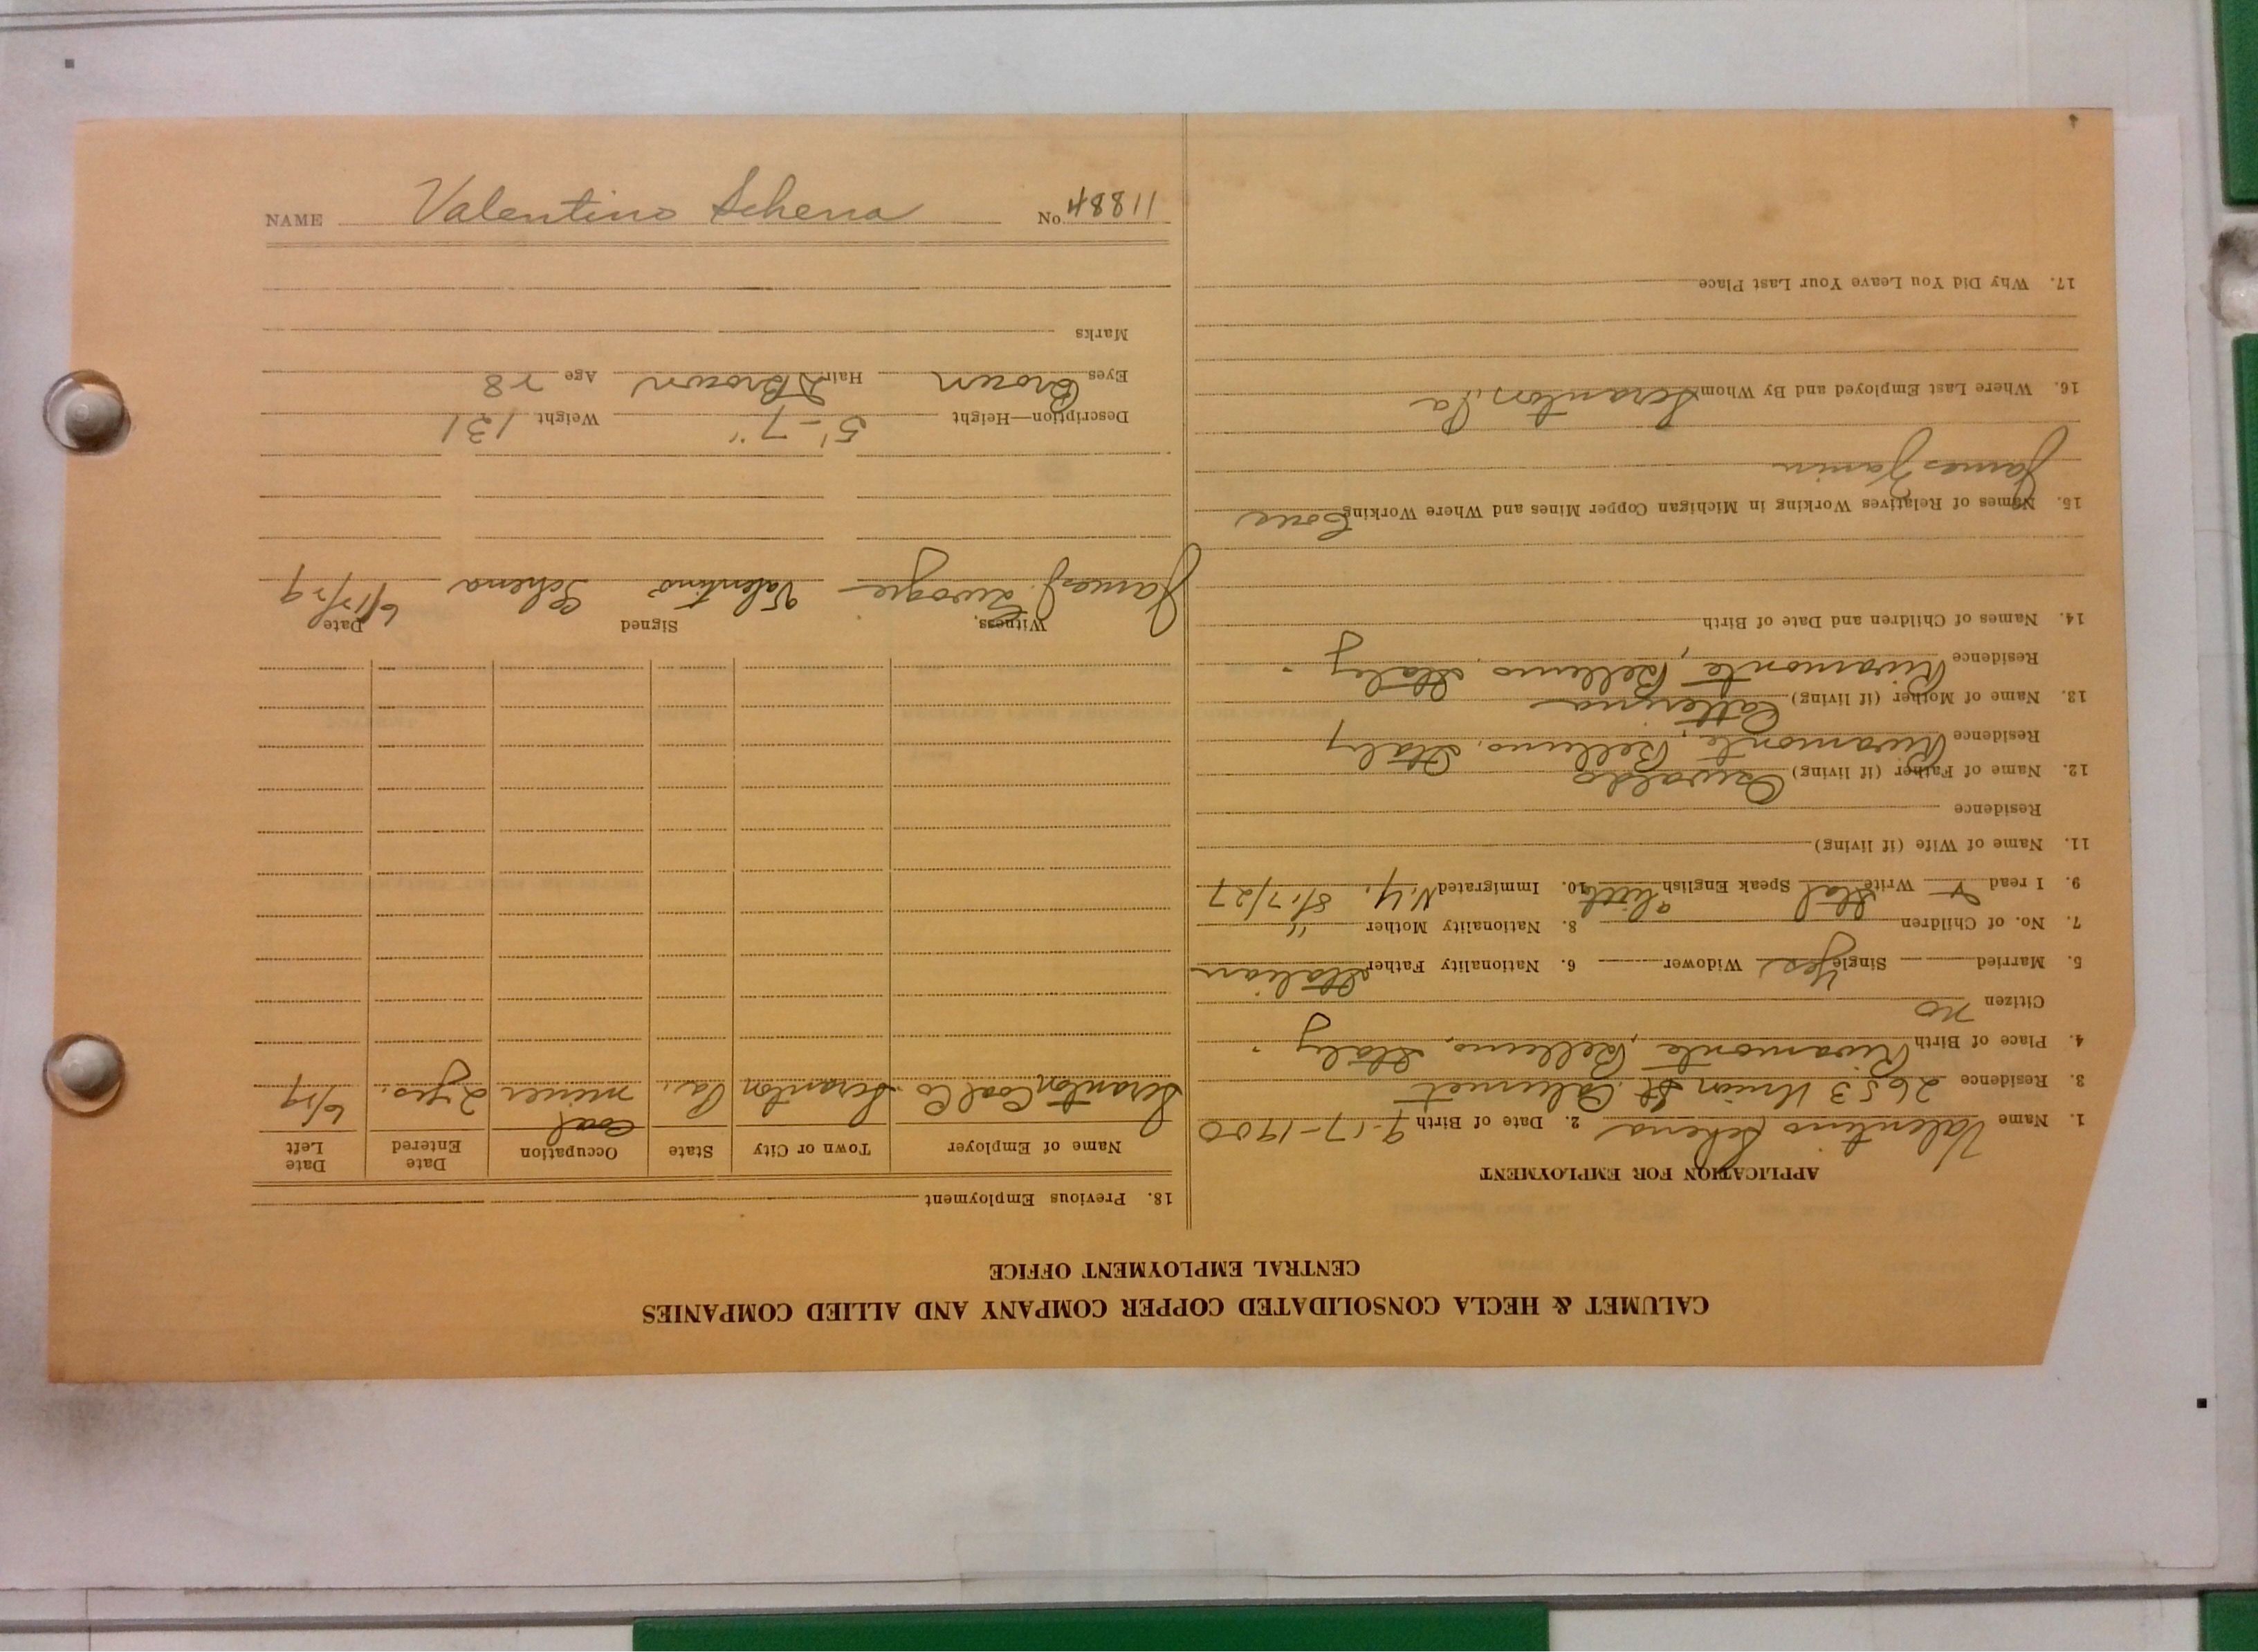 NAME Valentino Schena No. 48811
CALUMET & HECLA CONSOLIDATED COPPER COMPANY AND ALLIED COMPANIES
CENTRAL EMPLOYMENT OFFICE
APPLICATION FOR EMPLOYMENT
1. Name Valentino Schena 2. Date of Birth 9-17-1900
3. Residence 2653 Union St. Calumet
4. Place of Birth Rivamonte, Belluno, Italy.
Citizen no
5. Married Single Yes Widower 6. Nationality Father Italian
7. No. of Children 8. Nationality Mother "
9. I read & Write Ital Speak English little 10. Immigrated N.Y. 8/17/27
11. Name of Wife (if living)
Residence
12. Name of Father (if living) Oswaldo
Residence Rivamonte, Belluno, Italy
13. Name of Mother (if living) Catterina
Residence Rivamonte, Belluno, Italy.
14. Names of Children and Date of Birth
15. Names of Relatives Working in Michigan Copper Mines and Where Working
James
16. Where Last Employed and By Whom Scranton, Pa
17. Why Did You Leave Your Last Place
18. Previous Employment
Name of Employer Town or City State Occupation Date Entered Date Left
Scranton Coal Co. Scranton Pa. Coal miner 2 yrs. 6/29
Witness, Signed Date
James J. Valentino Schena 6/17/29
Description—Height 5'-7" Weight 131
Eyes Brown Hair D Brown Age 28
Marks